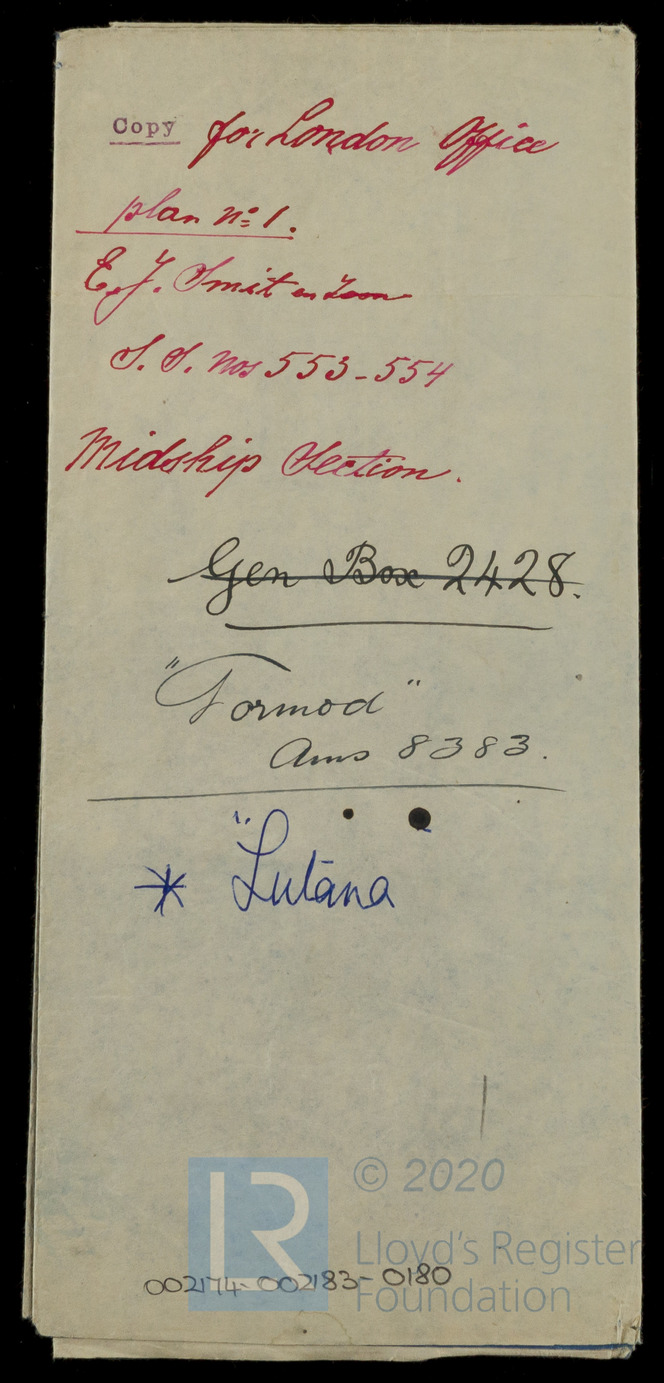 Copy for London Office
plan no: 1.
E.J. Smit en Zoon
S.S. nos 553-554
Midship Section.
Gen Box 2428.
"Tormod"
Ams 8383.
* "Lutāna"
© 2020
Lloyd's Register
Foundation
002174-002183-0180